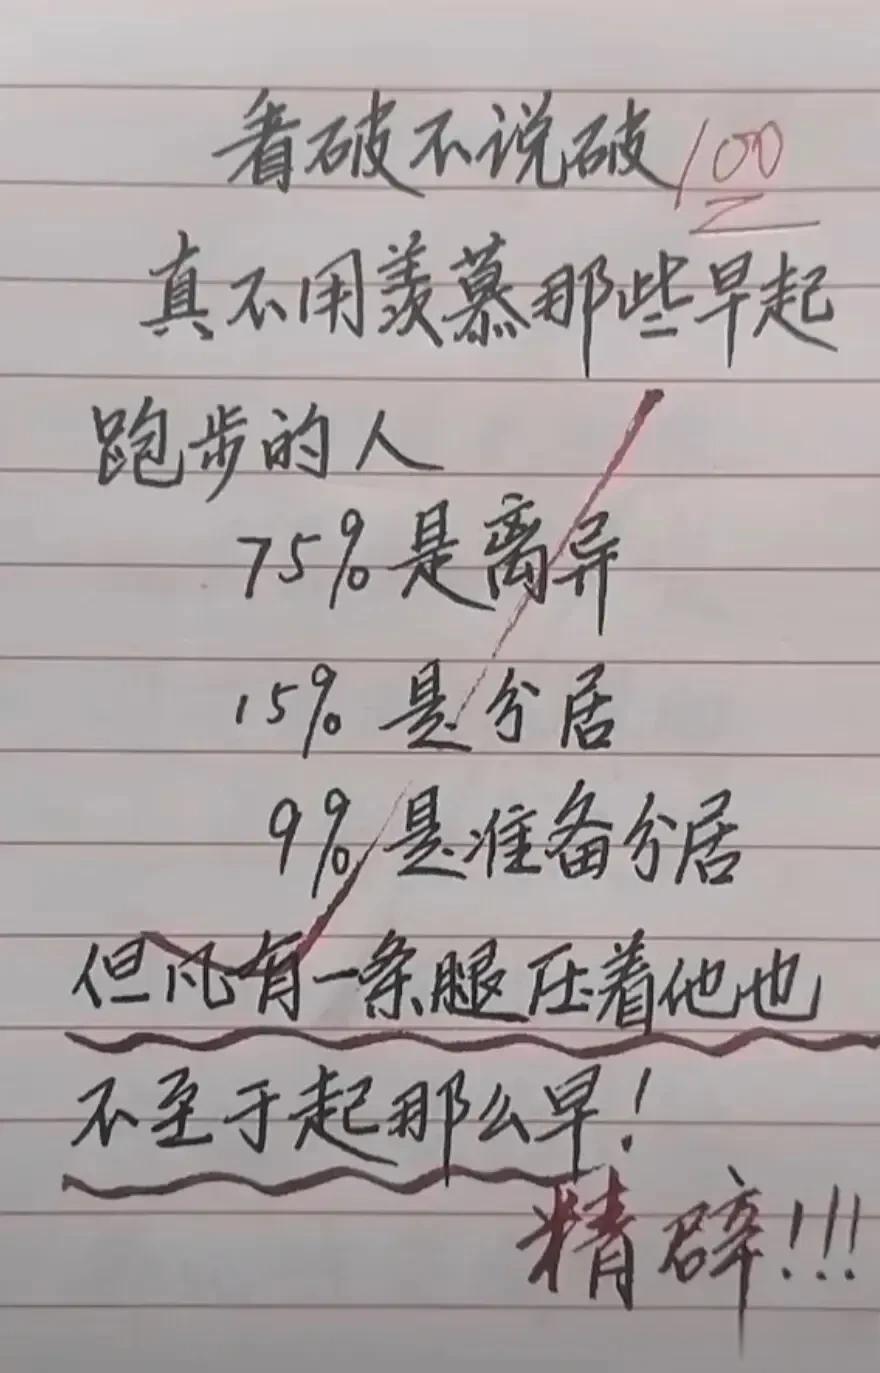 看破不说破 100
真不用羡慕那些早起
跑步的人
75%是离异
15%是分居
9%是准备分居
但凡有一条腿压着他也
不至于起那么早!
精辟!!!